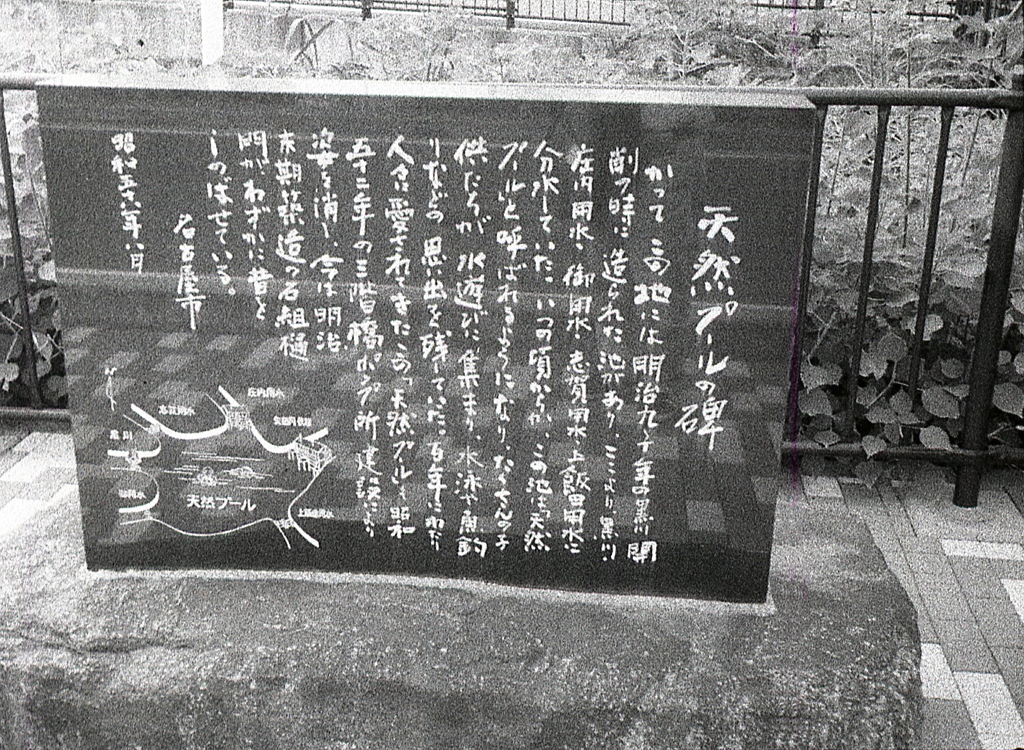 天然プールの碑
かつてこの地には明治九、十年の黒川開
削の時に造られた池があり、ここより黒川、
庄内用水、御用水、志賀用水、上飯田用水に
分水していた。いつの頃からか、この池は「天然
プール」と呼ばれるようになり、たくさんの子
供たちが水遊びに集まり、水泳や魚釣
りなどの思い出を残していた。百年にわたり
人々に愛されてきたこの「天然プール」も昭和
五十二年の三階橋ポンプ所建設により
姿を消し、今は明治
末期築造の石組樋
門がわずかに昔を
しのばせている。
名古屋市
昭和五十六年八月
志賀用水
庄内用水
矢田川伏越
黒川
御用水
天然プール
上飯田用水